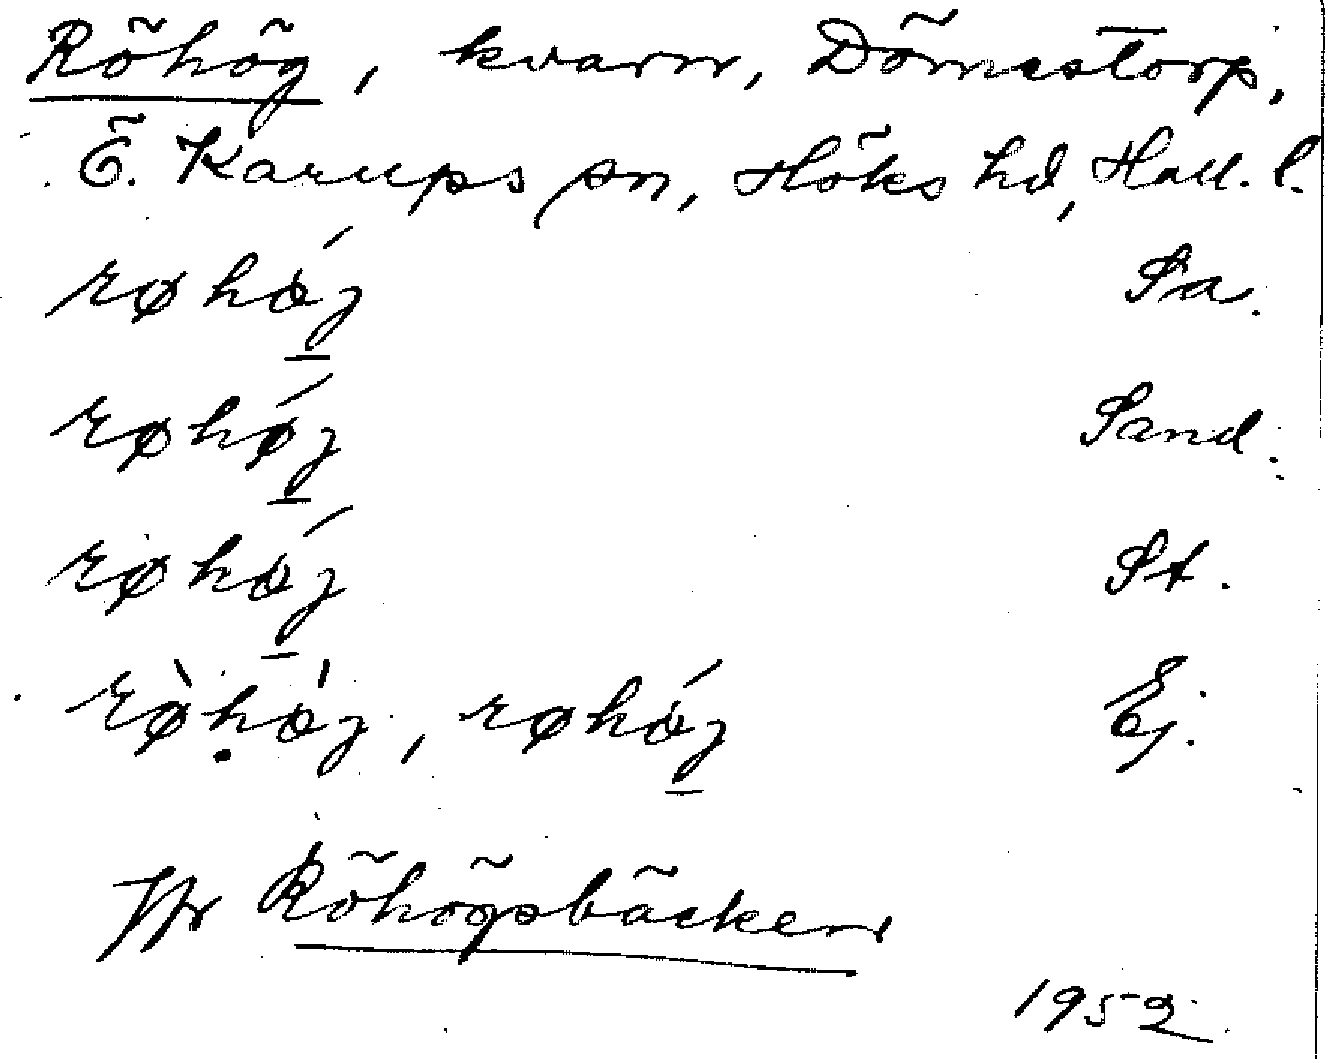 Röhög, kvarn, Dömestorp,
Ö. Karups sn, Höks hd, Hall. l.
røhǿj Sa.
røhǿj Sand.
røhǿj St.
rø̀hø̀j, røhǿj Ej.
Jfr Röhögsbäcken
1952